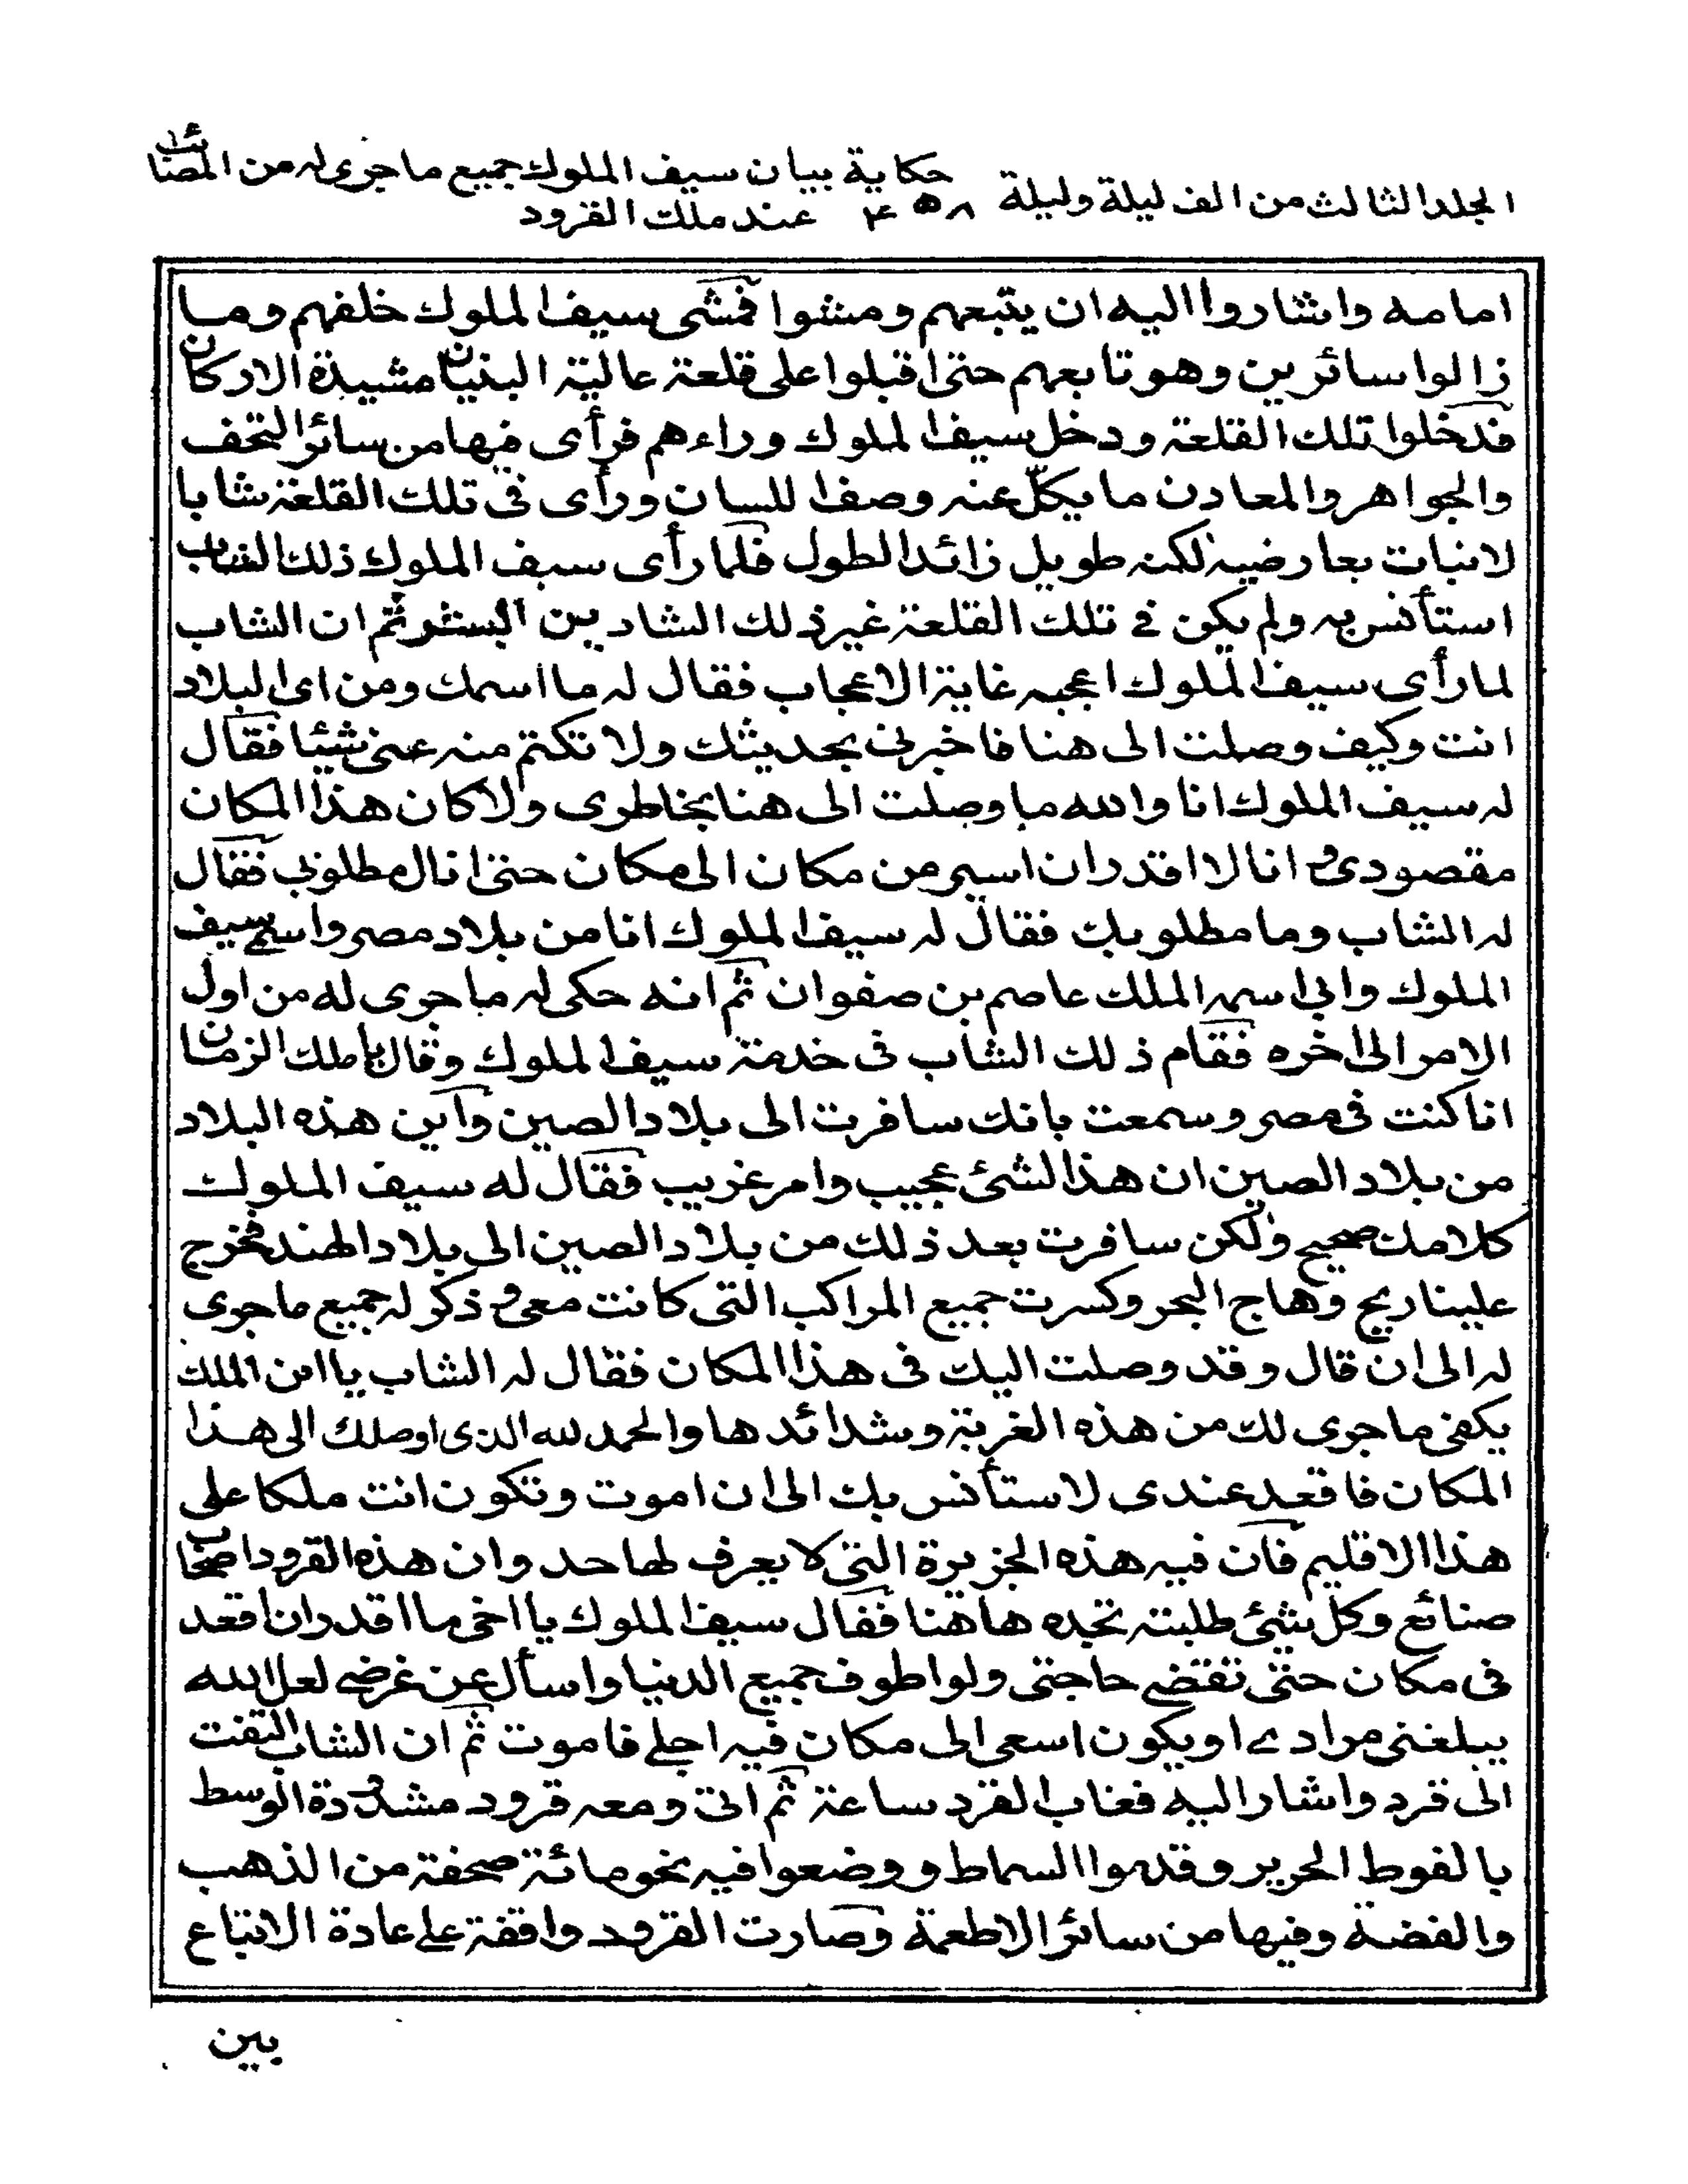 المجلد الثالث من الف ليلة وليلة ٤٥٨ حكاية بيان سيف الملوك جميع ما جرى له من المصائب
عند ملك القرود
امامه واشاروا اليه ان يتبعهم ومشوا فمشى سيف الملوك خلفهم وما
زالوا سائرين وهو تابعهم حتى اقبلوا على قلعة عالية البنيان مشيدة الاركان
فدخلوا تلك القلعة ودخل سيف الملوك وراءهم فرأى فيها من سائر التحف
والجواهر والمعادن ما يكلّ عنه وصف اللسان ورأى فى تلك القلعة شابا
لا نبات بعارضيه لكنه طويل زائد الطول فلما رأى سيف الملوك ذلك الشاب
استأنس به ولم يكن في تلك القلعة غير ذلك الشاب من البشر ثم ان الشاب
لما رأى سيف الملوك اعجبه غاية الاعجاب فقال له ما اسمك ومن اى البلاد
انت وكيف وصلت الى هنا فاخبرنى بحديثك ولا تكتم منه عنى شيئا فقال
له سيف الملوك انا والله ما وصلت الى هنا بخاطرى ولا كان هذا المكان
مقصودى وانا لا اقدر ان اسير من مكان الى مكان حتى انال مطلوبى فقال
له الشاب وما مطلوبك فقال له سيف الملوك انا من بلاد مصر واسمى سيف
الملوك وابى اسمه الملك عاصم بن صفوان ثم انه حكى له ما جرى له من اول
الامر الى اخره فقام ذلك الشاب فى خدمة سيف الملوك وقال يا ملك الزمان
انا كنت فى مصر وسمعت بانك سافرت الى بلاد الصين وأين هذه البلاد
من بلاد الصين ان هذا لشئ عجيب وامر غريب فقال له سيف الملوك
كلامك صحيح ولكن سافرت بعد ذلك من بلاد الصين الى بلاد الهند فخرج
علينا ريح وهاج البحر وكسرت جميع المراكب التى كانت معى وذكر له جميع ما جرى
له الى ان قال وقد وصلت اليك فى هذا المكان فقال له الشاب يا ابن الملك
يكفى ما جرى لك من هذه الغربة وشدائدها والحمد لله الذى اوصلك الى هذا
المكان فاقعد عندى لاستأنس بك الى ان اموت وتكون انت ملكا على
هذا الاقليم فان فيه هذه الجزيرة التى لا يعرف لها حد وان هذه القرود اصحاب
صنائع وكل شئ طلبته تجده هاهنا فقال سيف الملوك يا اخى ما اقدر ان اقعد
فى مكان حتى تقضى حاجتى ولو اطوف جميع الدنيا واسأل عن غرضى لعل الله
يبلغنى مرادى او يكون اسعى الى مكان فيه اجلى فاموت ثم ان الشاب التفت
الى قرد واشار اليه فغاب القرد ساعة ثم اتى ومعه قرود مشدودة الوسط
بالفوط الحرير وقدموا السماط ووضعوا فيه نحو مائة صحفة من الذهب
والفضة وفيها من سائر الاطعمة وصارت القرود واقفة على عادة الاتباع
بين